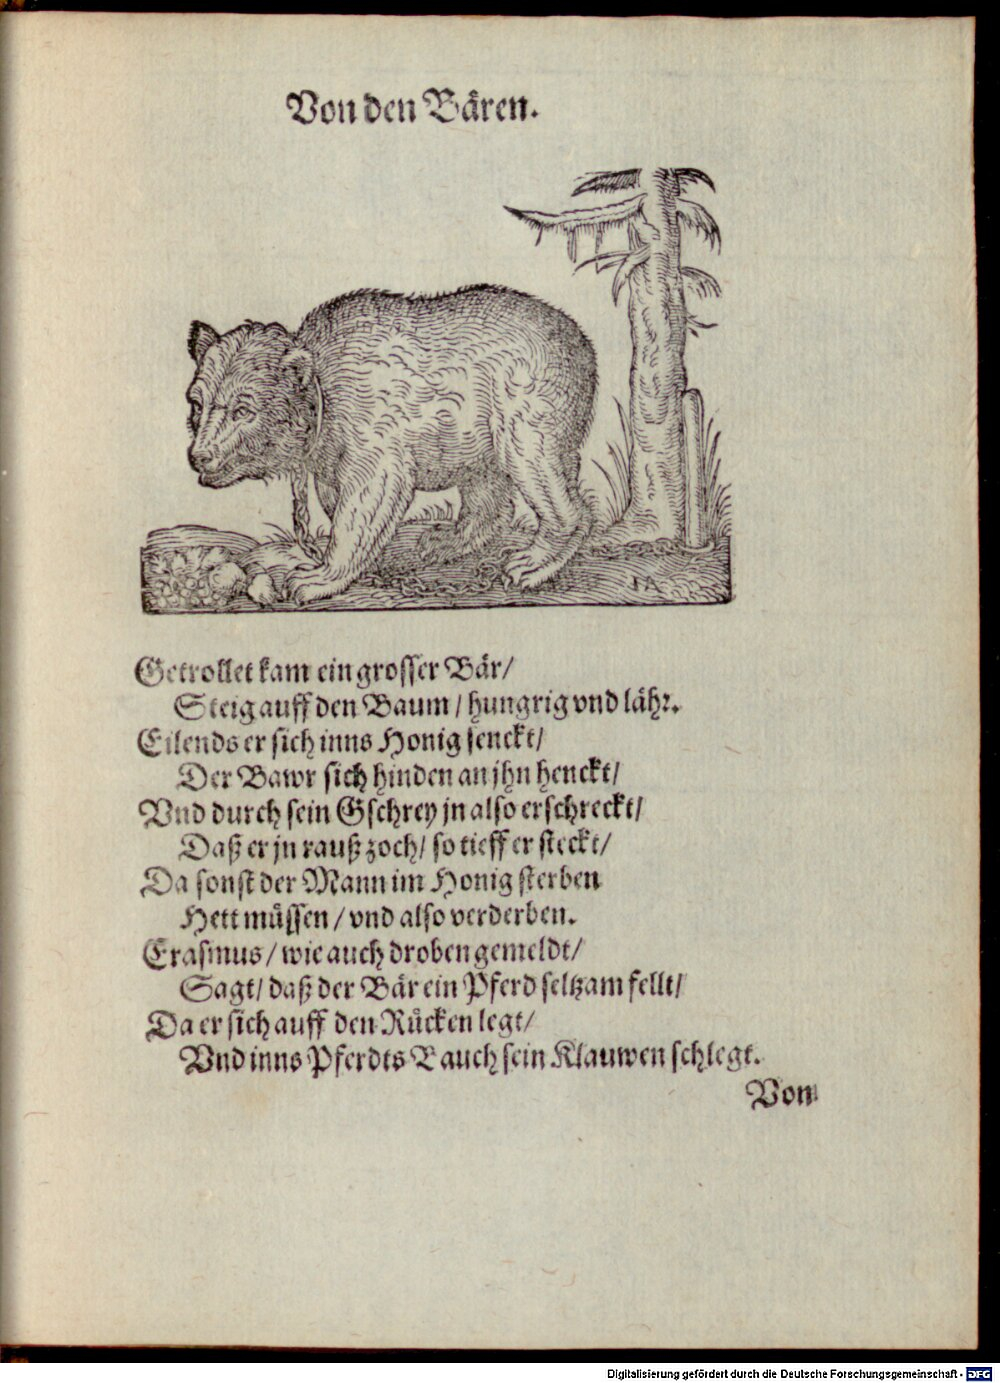 Von den Bären.
IA
Getrollet kam ein grosser Bär/
Steig auff den Baum / hungrig vnd lähr.
Eilends er sich inns Honig senckt/
Der Bawr sich hinden an jhn henckt/
Vnd durch sein Gschrey jn also erschreckt/
Daß er jn rauß zoch/ so tieff er steckt/
Da sonst der Mann im Honig sterben
Hett müssen / vnd also verderben.
Erasmus / wie auch droben gemeldt/
Sagt/ daß der Bär ein Pferd seltzam fellt/
Da er sich auff den Rücken legt/
Vnd inns Pferdts Bauch sein Klauwen schlegt.
Von
Digitalisierung gefördert durch die Deutsche Forschungsgemeinschaft - DFG